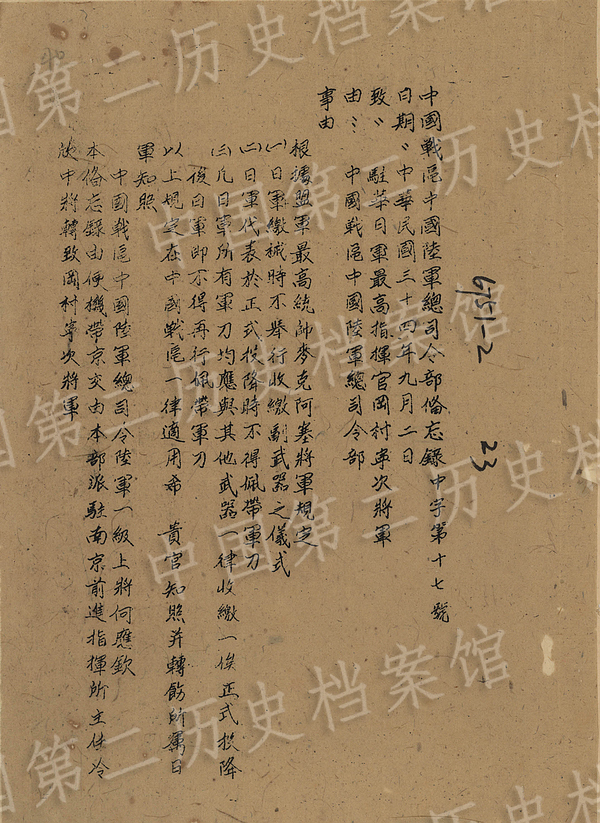 中國戰區中國陸軍總司令部備忘錄中字第十七號
日期：中華民國三十四年九月二日
致：駐華日軍最高指揮官岡村寧次將軍
由：中國戰區中國陸軍總司令部
事由
根據盟軍最高統帥麥克阿塞將軍規定
㈠日軍繳械時不舉行收繳副武器之儀式
㈡日軍代表於正式投降時不得佩帶軍刀
㈢凡日軍所有軍刀均應與其他武器一律收繳一俟正式投降
後日軍即不得再行佩帶軍刀
以上規定在中國戰區一律適用希 貴官知照并轉飭所屬日
軍知照
中國戰區中國陸軍總司令陸軍一級上將何應欽
本備忘錄由便機帶京交由本部派駐南京前進指揮所主任冷
欣中將轉致岡村寧次將軍
6751-2
23
中国第二历史档案馆
中国第二历史档案馆
中国第二历史档案馆
中国第二历史档案馆